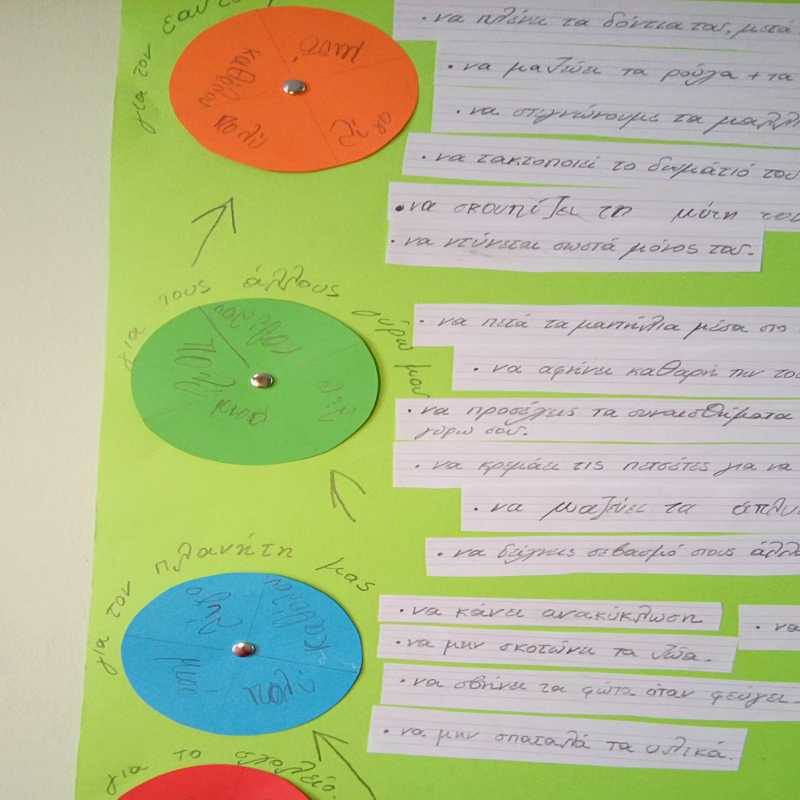 για τον εαυτό
καθόλου
μισό
λίγο
για τους άλλους γύρω μου
καθόλου
πολύ
λίγο
μισό
για τον πλανήτη μας
καθόλου
λίγο
μισό
για το σχολείο.
· να πλένει τα δόντια του, μετά
· να μαζεύει τα ρούχα + τα
· να στεγνώνουμε τα μαλλι
· να τακτοποιεί το δωμάτιό του
· να σκουπίζει τη μύτη του
· να ντύνεται σωστά μόνος του.
· να πετά τα μαντήλια μέσα στο
· να αφήνει καθαρή την του
· να προσέχεις τα συναισθήματα
γύρω σου.
· να κρεμάει τις πετσέτες για να
· να μαζεύει τα άπλυ
· να δείχνεις σεβασμό στους άλλο
· να κάνει ανακύκλωση
· να
· να μην σκοτώνει τα ζώα.
· να σβήνει τα φώτα όταν φεύγει.
· να μην σπαταλά τα υλικά.